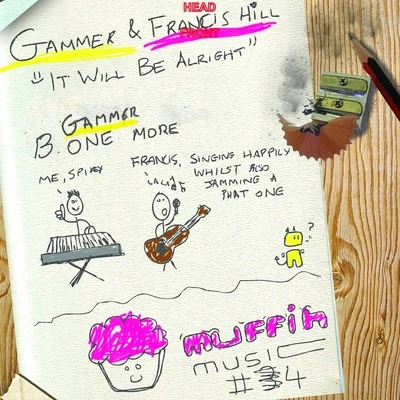 HEAD
FRONT
GAMMER & FRANCIS HILL
"IT WILL BE ALRIGHT"
GAMMER
B. ONE MORE
ME, SPIKEY
FRANCIS, SINGING HAPPILY
WHILST ALSO
JAMMING A
PHAT ONE
LALALA
?
muffin
MUSIC
#4